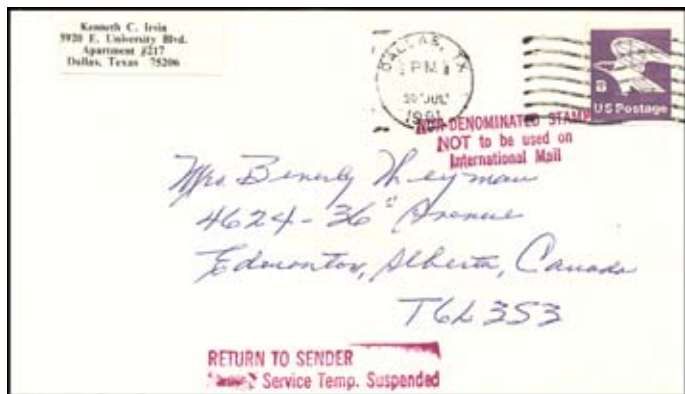 Kenneth C. Irvin
5920 E. University Blvd.
Apartment #217
Dallas, Texas 75206
DALLAS, TX
PM
30 JUL
1981
US Postage
NON-DENOMINATED STAMP
NOT to be used on
International Mail
Mrs Beverly Theyman
4624-36th Avenue
Edmonton, Alberta, Canada
T6L 3S3
RETURN TO SENDER
Service Temp. Suspended